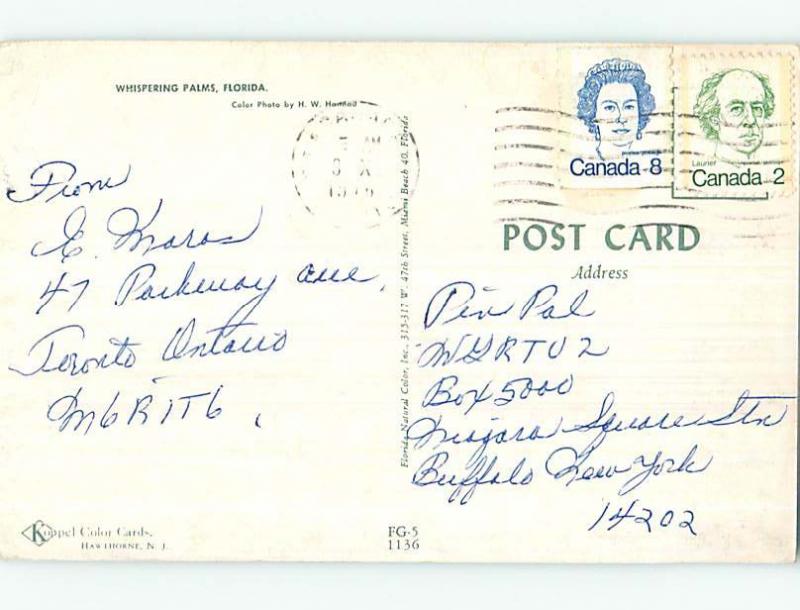 WHISPERING PALMS, FLORIDA.
Color Photo by H. W. Hannau
From
E. Maras
47 Parkway Ave,
Toronto Ontario
M6R1T6
Koppel Color Cards,
HAWTHORNE, N. J.
Florida Natural Color, Inc. 315-317 W. 47th Street, Miami Beach 40, Florida
FG-5
1136
Canada 8
Laurier
Canada 2
POST CARD
Address
Pin Pal
WGRTV 2
Box 5000
Niagara Square Stn
Buffalo New York
14202